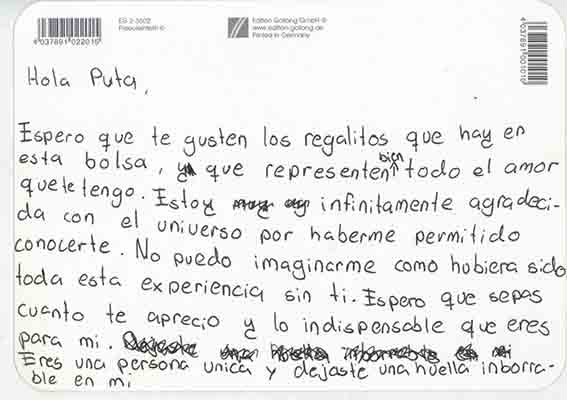 EG 2-3502
Passauerlein ©
Edition Gollong GmbH ®
www.edition-gollong.de
Printed in Germany
4 037891 022019
4 037891 001010
Hola Puta,
Espero que te gusten los regalitos que hay en
esta bolsa, y que representen bien todo el amor
que te tengo. Estoy infinitamente agradeci-
da con el universo por haberme permitido
conocerte. No puedo imaginarme como hubiera sido
toda esta experiencia sin ti. Espero que sepas
cuanto te aprecio y lo indispensable que eres
para mi.
Eres una persona unica y dejaste una huella inborra-
ble en mi